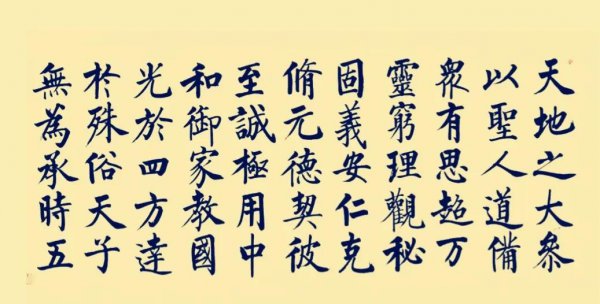 天地之大叅
以聖人道備
衆有思超万
靈窮理觀秘
固義安仁克
脩元德契彼
至誠極用中
和御家教國
光於四方達
於殊俗天子
無為承時五